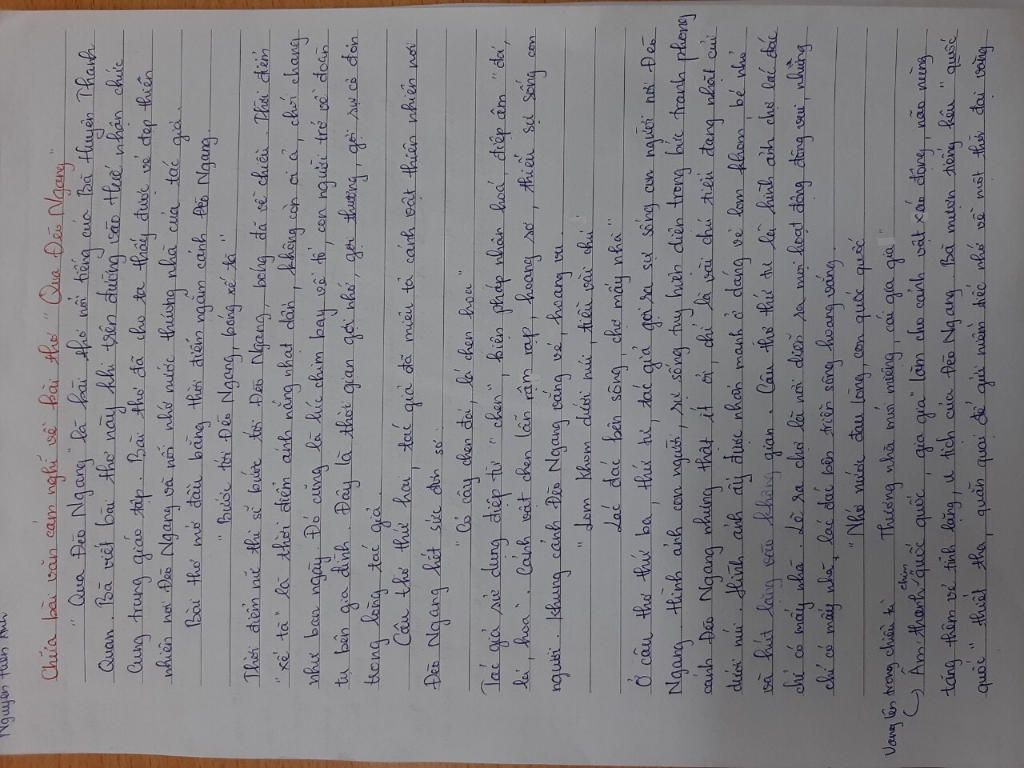 Nguyễn Tuấn Anh
Chữa bài văn cảm nghĩ về bài thơ "Qua Đèo Ngang"
"Qua Đèo Ngang" là bài thơ nổi tiếng của Bà Huyện Thanh
Quan. Bà viết bài thơ này khi trên đường vào Huế nhận chức
Cung trung giáo tập. Bài thơ đã cho ta thấy được vẻ đẹp thiên
nhiên nơi Đèo Ngang và nỗi nhớ nước thương nhà của tác giả.
Bài thơ mở đầu bằng thời điểm ngắm cảnh Đèo Ngang.
"Bước tới Đèo Ngang, bóng xế tà"
Thời điểm nữ thi sĩ bước tới Đèo Ngang, bóng đã về chiều. Thời điểm
"xế tà" là thời điểm ánh nắng nhạt dần, không còn oi ả, chói chang
như ban ngày. Đó cũng là lúc chim bay về tổ, con người trở về đoàn
tụ bên gia đình. Đây là thời gian gợi nhớ, gợi thương, gợi sự cô đơn
trong lòng tác giả.
Câu thơ thứ hai, tác giả đã miêu tả cảnh vật thiên nhiên nơi
Đèo Ngang hết sức đơn sơ.
"Cỏ cây chen đá, lá chen hoa"
Tác giả sử dụng điệp từ "chen", biện pháp nhân hoá, điệp âm "đá,
lá, hoa". Cảnh vật chen lấn rậm rạp, hoang sơ, thiếu sự sống con
người. Khung cảnh Đèo Ngang vắng vẻ, hoang vu.
"Lom khom dưới núi, tiều vài chú
Lác đác bên sông, chợ mấy nhà"
Ở câu thơ thứ ba, thứ tư, tác giả gợi ra sự sống con người nơi Đèo
Ngang. Hình ảnh con người, sự sống tuy hiện diện trong bức tranh phong
cảnh Đèo Ngang nhưng thật ít ỏi, chỉ là vài chú tiều đang nhặt củi
dưới núi. Hình ảnh ấy được nhấn mạnh ở dáng vẻ lom khom bé nhỏ
và hút lấy vào không gian. Câu thơ thứ tư là hình ảnh chợ lác đác
chỉ có mấy nhà. Lẽ ra chợ là nơi diễn ra mọi hoạt động đông vui, nhưng
chỉ có mấy nhà, lác đác bên triền sông hoang vắng.
"Nhớ nước đau lòng, con quốc quốc
Thương nhà mỏi miệng, cái gia gia"
Vang lên trong chiều tà
Âm thanh chim "quốc quốc, gia gia" làm cho cảnh vật xao động, não nùng
tăng thêm vẻ tĩnh lặng, u tịch của Đèo Ngang. Bà mượn tiếng kêu "quốc
quốc" thiết tha, quằn quại để gửi niềm tiếc nhớ về một thời đại vàng